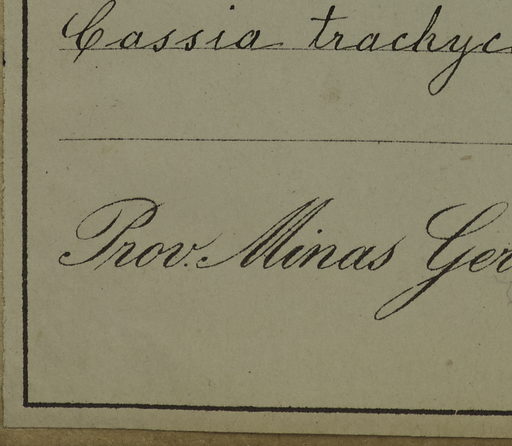 Cassia trachyc
Prov. Minas Ger